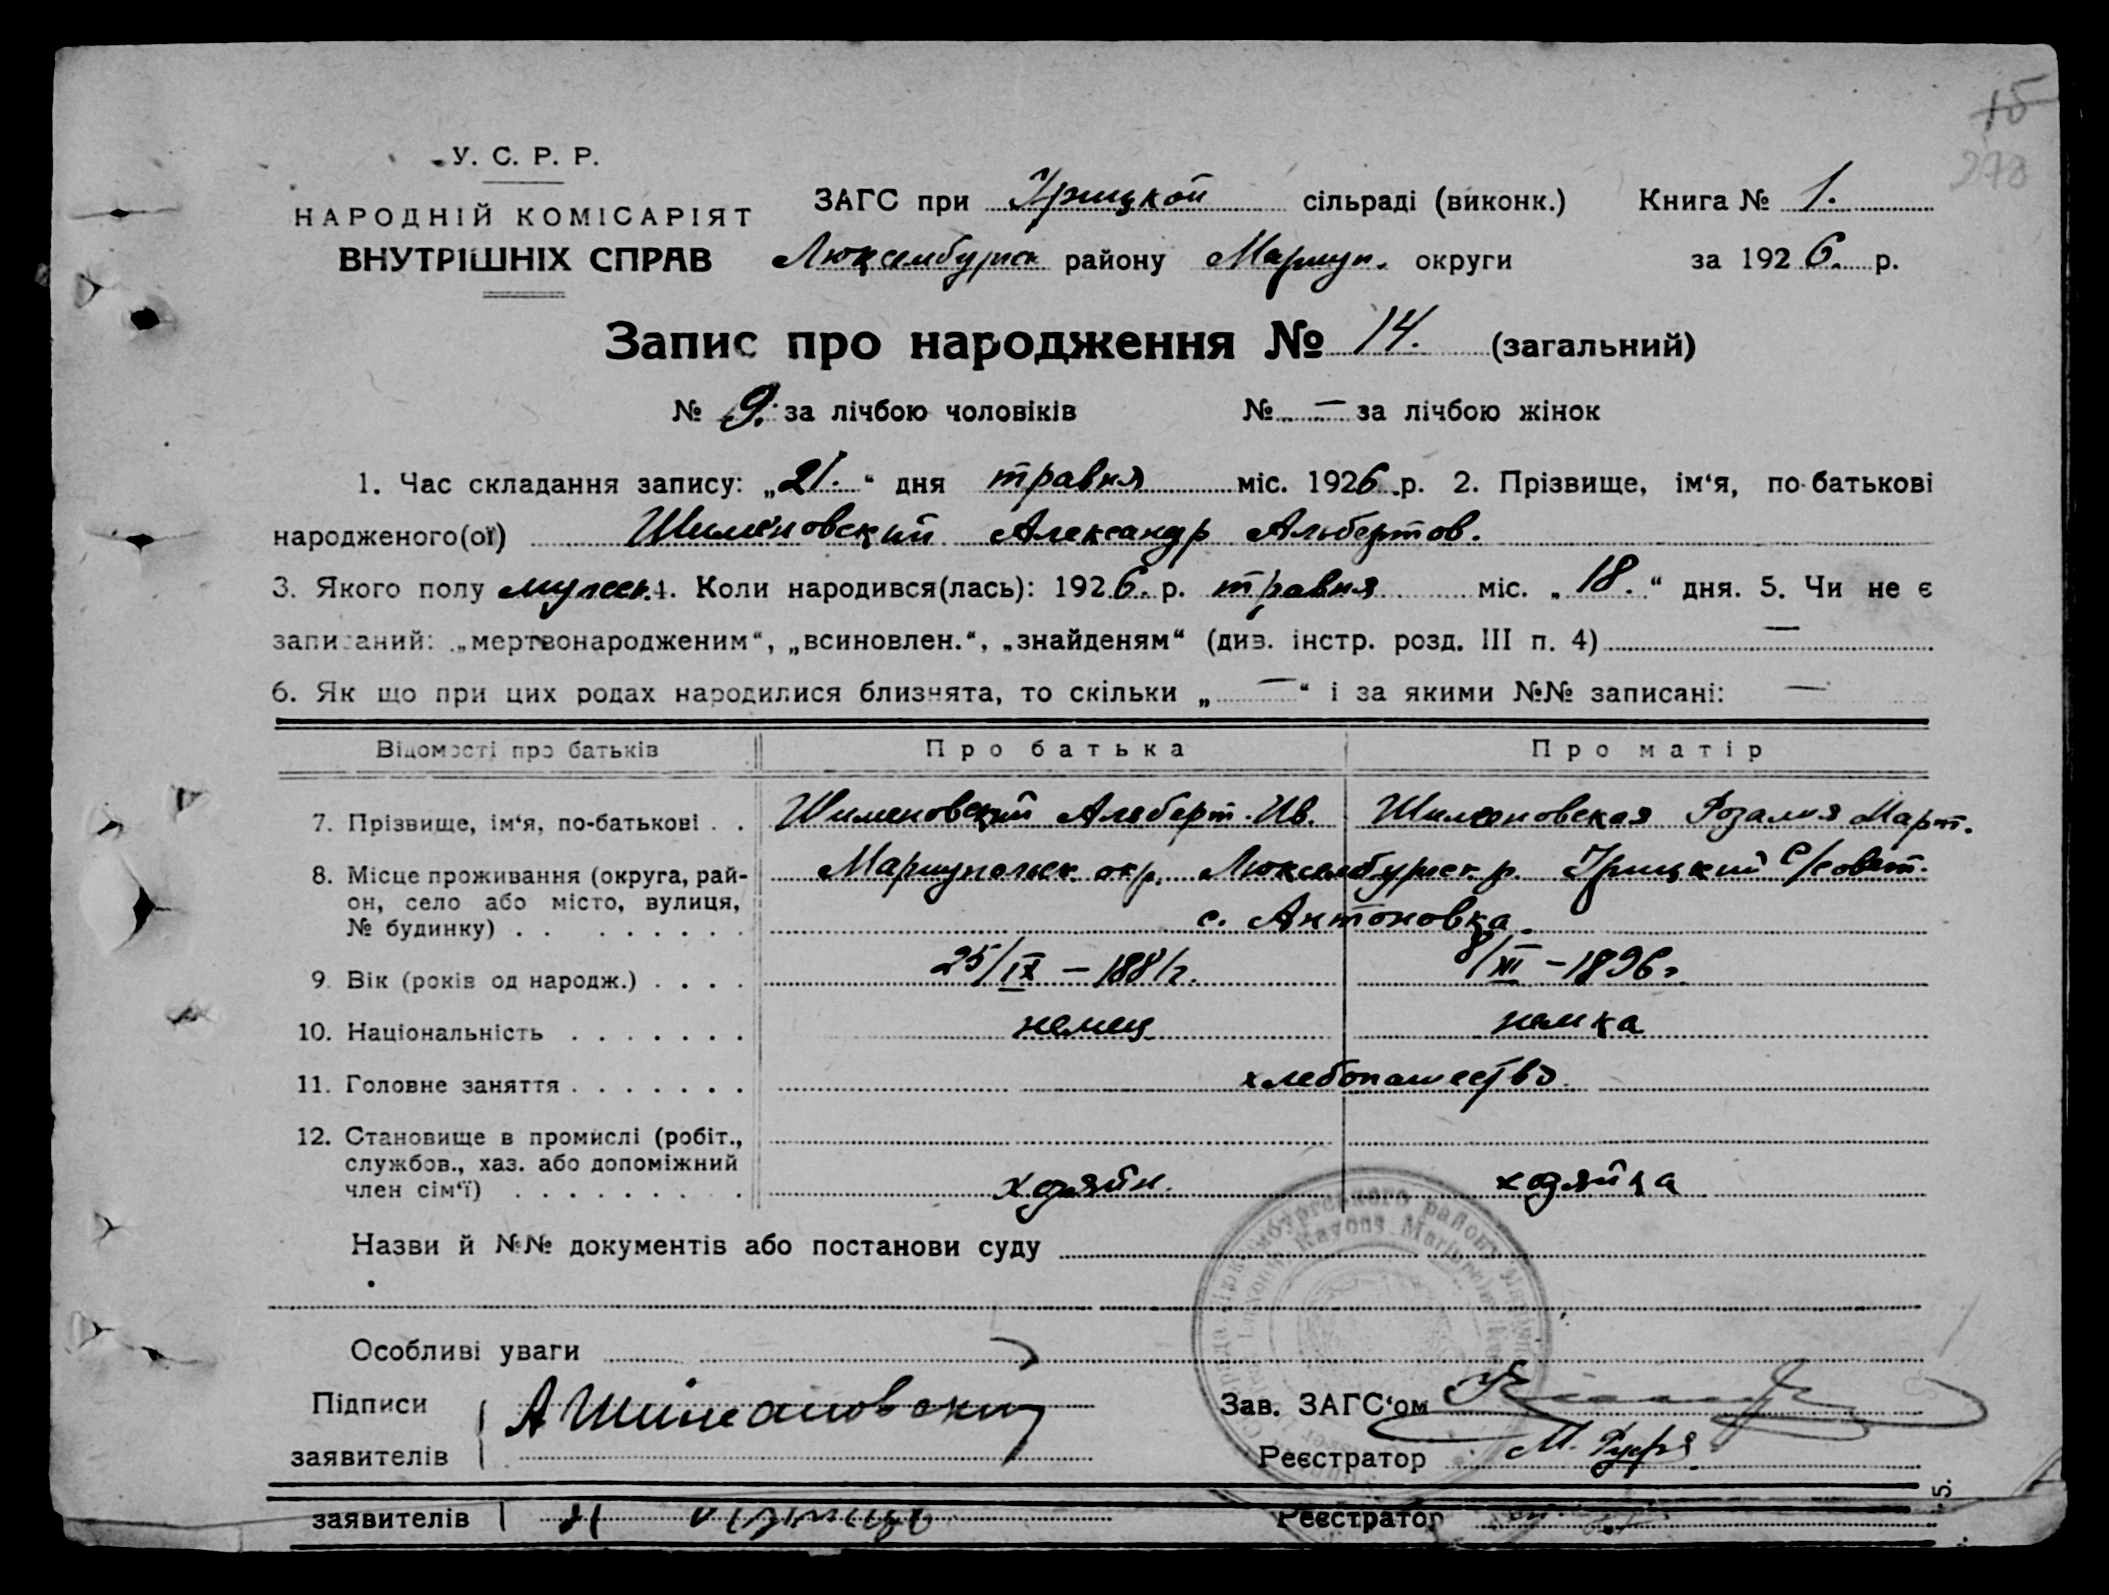 15
273
У. С. Р. Р.
НАРОДНІЙ КОМІСАРІЯТ
ВНУТРІШНІХ СПРАВ
ЗАГС при Урицкой сільраді (виконк.) Книга № 1.
Люксембургск району Мариуп. округи за 1926. р.
Запис про народження № 14. (загальний)
№ 9. за лічбою чоловіків № — за лічбою жінок
1. Час складання запису: „21.“ дня травня міс. 1926 р. 2. Прізвище, ім‘я, по-батькові
народженого(ої) Шименовский Александр Альбертов.
3. Якого полу мужеск. 4. Коли народився(лась): 1926. р. травня міс. „18.“ дня. 5. Чи не є
записаний: „мертвонародженим“, „всиновлен.“, „знайденям“ (див. інстр. розд. III п. 4) —
6. Як що при цих родах народилися близнята, то скільки „—“ і за якими №№ записані: —
Відомості про батьків Про батька Про матір
7. Прізвище, ім‘я, по-батькові . . Шименовский Альберт. Ив. Шименовская Розалия Март.
8. Місце проживання (округа, рай- Мариупольск. окр. Люксембургск. р. Урицкий с/совет.
он, село або місто, вулиця,
№ будинку) . . . . . . . . с. Антоновка.
9. Вік (років од народж.) . . . . 25/IX – 1881г. 8/XI – 1896г.
10. Національність . . . . . . . немец немка
11. Головне заняття . . . . . . . хлебопашество.
12. Становище в промислі (робіт.,
службов., хаз. або допоміжний
член сім‘ї) . . . . . . . . . хозяйн. хозяйка
Назви й №№ документів або постанови суду
Особливі уваги
Підписи А Шимановский Зав. ЗАГС‘ом
заявителів Реєстратор М.
заявителів Реєстратор